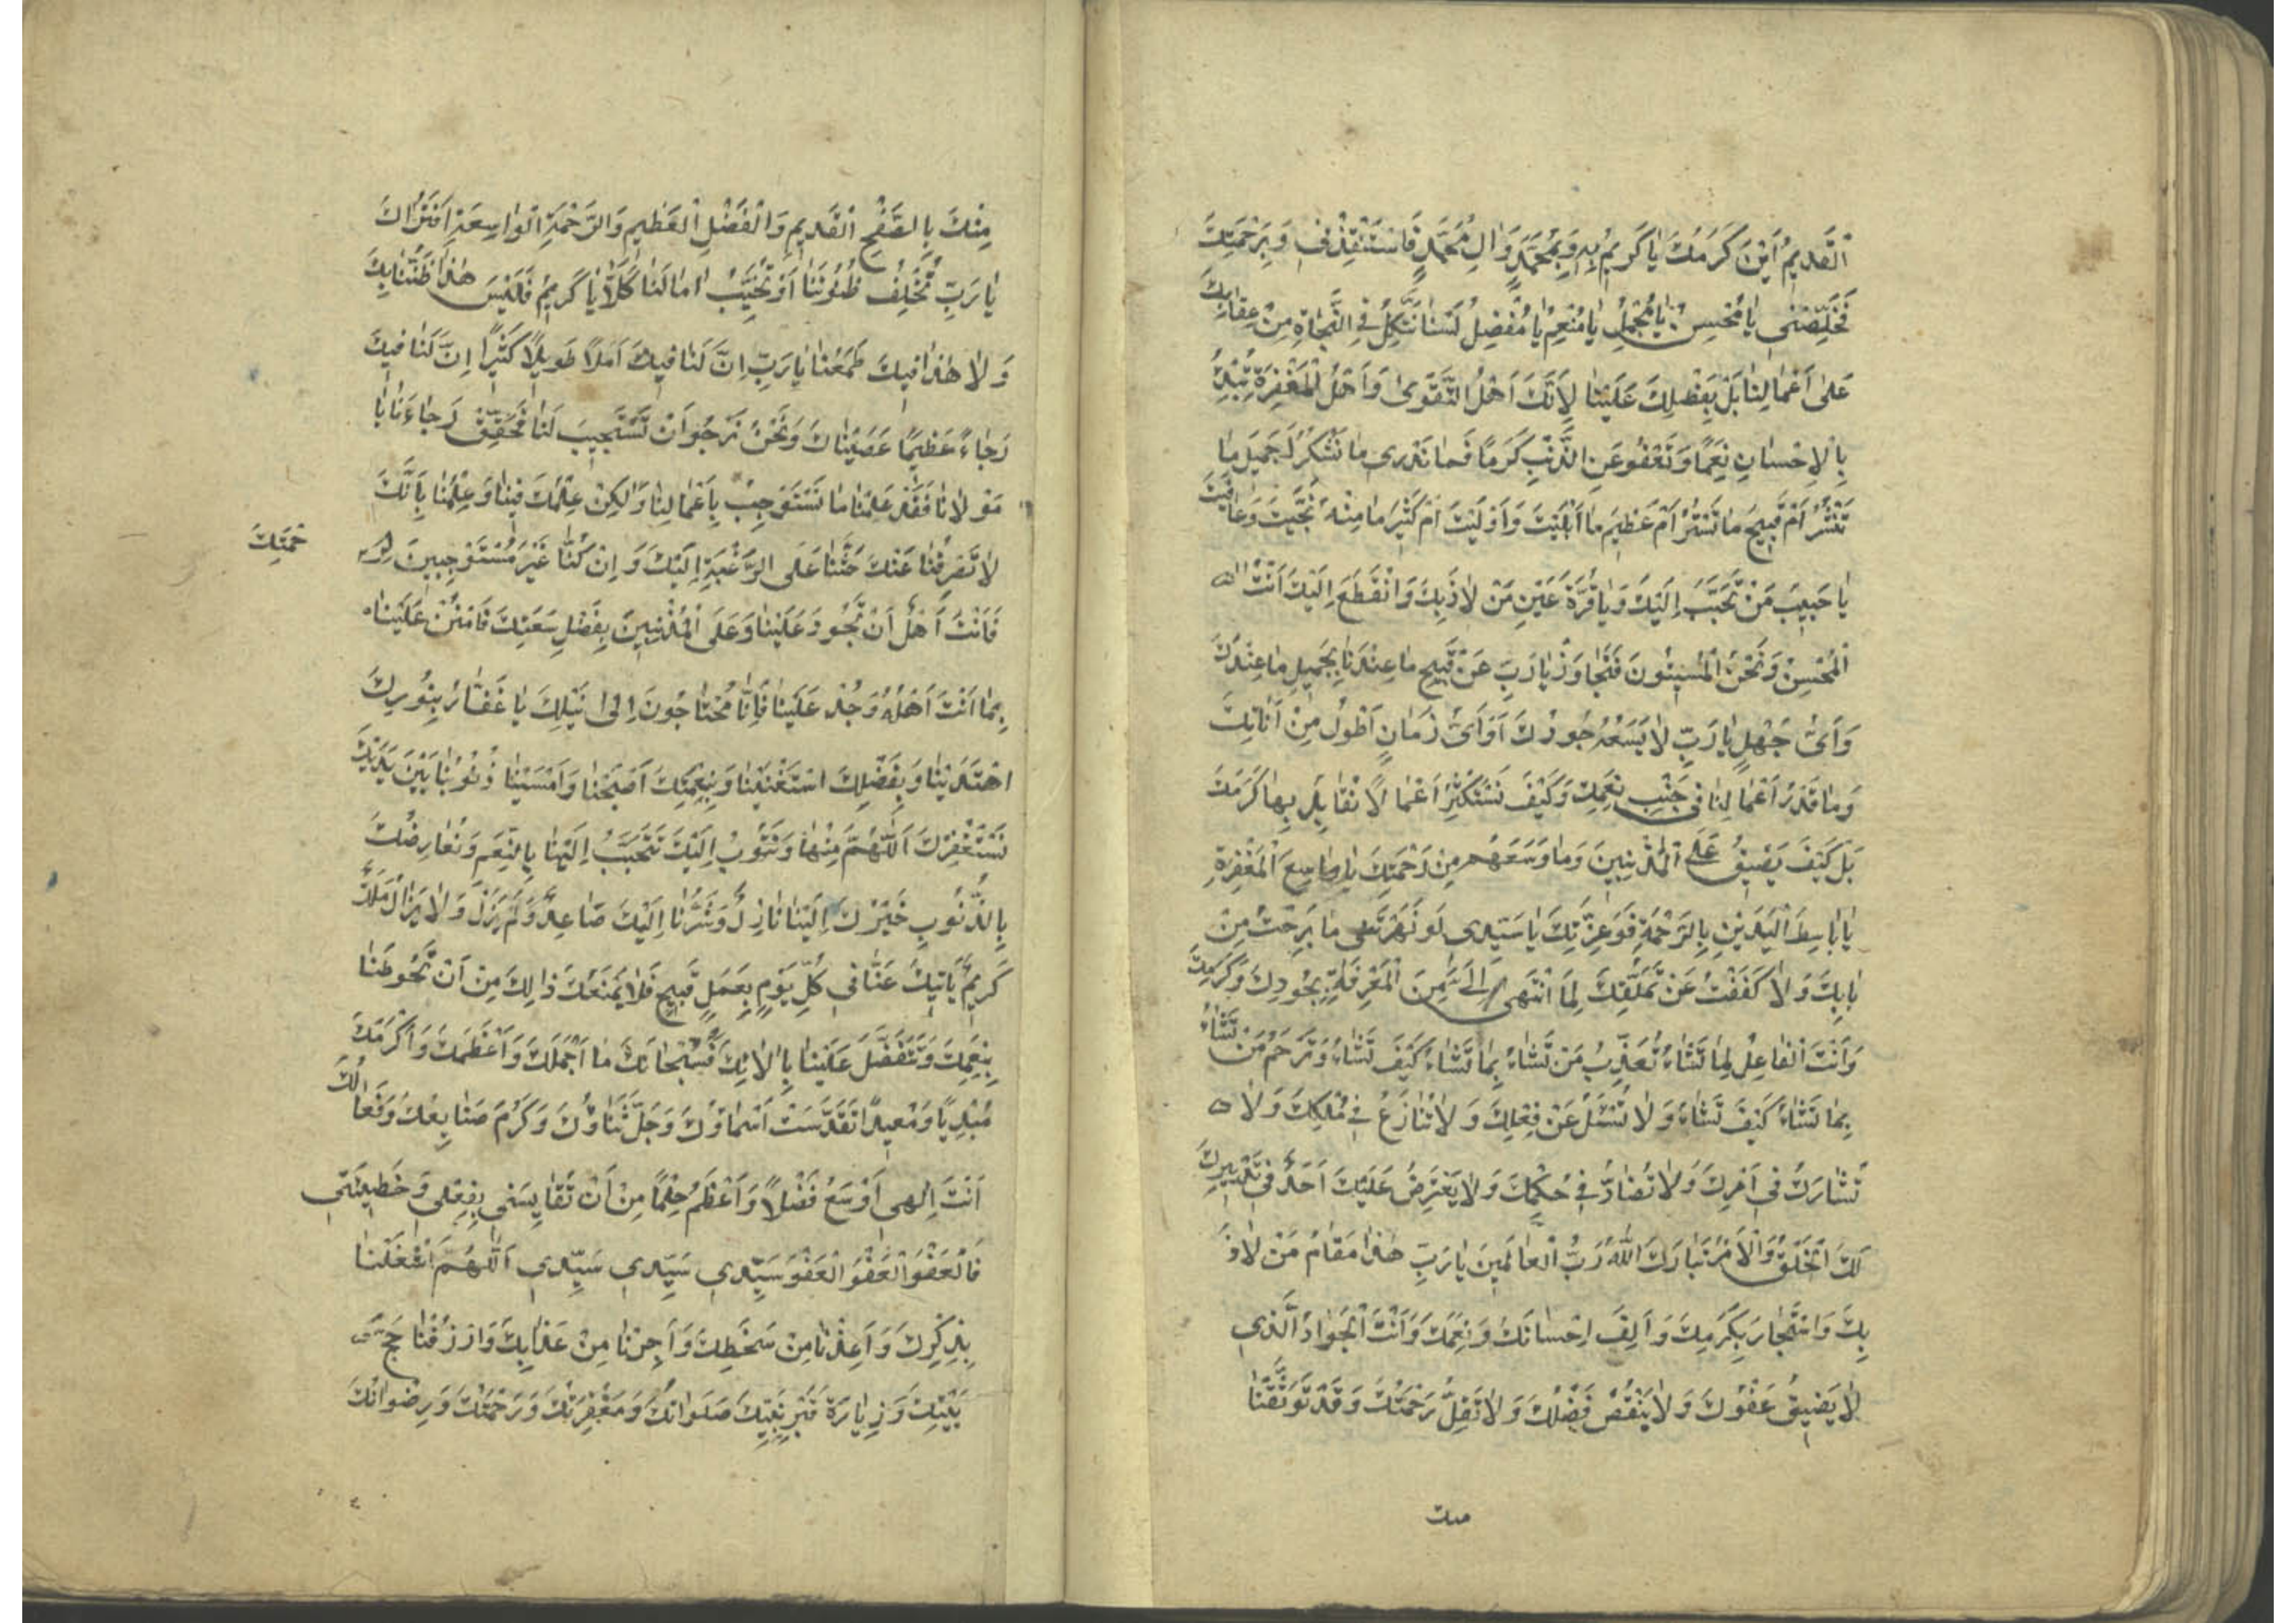 اَلْقَدِيمُ اَيْنَ كَرَمُكَ يٰا كَرِيمُ بِهِ وَبِمُحَمَّدٍ وَاٰلِ مُحَمَّدٍ فَاسْتَنْقِذْنِي وَبِرَحْمَتِكَ
فَخَلِّصْنِي يٰا مُحْسِنُ يٰا مُجْمِلُ يٰا مُنْعِمُ يٰا مُفْضِلُ لَسْنٰا نَتَّكِلُ فِي النَّجٰاةِ مِنْ عِقٰابِكَ
عَلىٰ اَعْمٰالِنٰا بَلْ بِفَضْلِكَ عَلَيْنٰا لِاَنَّكَ اَهْلُ التَّقْوىٰ وَاَهْلُ الْمَغْفِرَةِ تُبْدِئُ
بِالْاِحْسٰانِ نِعَمًا وَتَعْفُو عَنِ الذَّنْبِ كَرَمًا فَمٰا نَدْرِي مٰا نَشْكُرُ اَجَمِيلَ مٰا
تَنْشُرُ اَمْ قَبِيحَ مٰا تَسْتُرُ اَمْ عَظِيمَ مٰا اَبْلَيْتَ وَاَوْلَيْتَ اَمْ كَثِيرَ مٰا مِنْهُ نَجَّيْتَ وَعٰافَيْتَ
يٰا حَبِيبَ مَنْ تَحَبَّبَ اِلَيْكَ وَيٰا قُرَّةَ عَيْنِ مَنْ لٰاذَ بِكَ وَانْقَطَعَ اِلَيْكَ اَنْتَ
الْمُحْسِنُ وَنَحْنُ الْمُسِيئُونَ فَتَجٰاوَزْ يٰا رَبِّ عَنْ قَبِيحِ مٰا عِنْدَنٰا بِجَمِيلِ مٰا عِنْدَكَ
وَاَيُّ جَهْلٍ يٰا رَبِّ لٰا يَسَعُهُ جُودُكَ اَوْ اَيُّ زَمٰانٍ اَطْوَلُ مِنْ اَنٰاتِكَ
وَمٰا قَدْرُ اَعْمٰالِنٰا فِي جَنْبِ نِعَمِكَ وَكَيْفَ نَسْتَكْثِرُ اَعْمٰالًا نُقٰابِلُ بِهٰا كَرَمَكَ
بَلْ كَيْفَ يَضِيقُ عَلَى الْمُذْنِبِينَ مٰا وَسِعَهُمْ مِنْ رَحْمَتِكَ يٰا وٰاسِعَ الْمَغْفِرَةِ
يٰا بٰاسِطَ الْيَدَيْنِ بِالرَّحْمَةِ فَوَعِزَّتِكَ يٰا سَيِّدِي لَوْ نَهَرْتَنِي مٰا بَرِحْتُ مِنْ
بٰابِكَ وَلٰا كَفَفْتُ عَنْ تَمَلُّقِكَ لِمَا انْتَهىٰ اِلَيَّ مِنَ الْمَعْرِفَةِ بِجُودِكَ وَكَرَمِكَ
وَاَنْتَ الْفٰاعِلُ لِمٰا تَشٰاءُ تُعَذِّبُ مَنْ تَشٰاءُ بِمٰا تَشٰاءُ كَيْفَ تَشٰاءُ وَتَرْحَمُ مَنْ تَشٰاءُ
بِمٰا تَشٰاءُ كَيْفَ تَشٰاءُ وَلٰا تُسْئَلُ عَنْ فِعْلِكَ وَلٰا تُنٰازَعُ فِي مُلْكِكَ وَلٰا
تُشٰارَكُ فِي اَمْرِكَ وَلٰا تُضٰادُّ فِي حُكْمِكَ وَلٰا يَعْتَرِضُ عَلَيْكَ اَحَدٌ فِي تَدْبِيرِكَ
لَكَ الْخَلْقُ وَالْاَمْرُ تَبٰارَكَ اللّٰهُ رَبُّ الْعٰالَمِينَ يٰا رَبِّ هٰذٰا مَقٰامُ مَنْ لٰاذَ
بِكَ وَاسْتَجٰارَ بِكَرَمِكَ وَاَلِفَ اِحْسٰانَكَ وَنِعَمَكَ وَاَنْتَ الْجَوٰادُ الَّذِي
لٰا يَضِيقُ عَفْوُكَ وَلٰا يَنْقُصُ فَضْلُكَ وَلٰا تَقِلُّ رَحْمَتُكَ وَقَدْ تَوَثَّقْنٰا
منك
مِنْكَ بِالصَّفْحِ الْقَدِيمِ وَالْفَضْلِ الْعَظِيمِ وَالرَّحْمَةِ الْوٰاسِعَةِ اَفَتَرٰاكَ
يٰا رَبِّ تُخْلِفُ ظُنُونَنٰا اَوْ تُخَيِّبُ اٰمٰالَنٰا كَلّٰا يٰا كَرِيمُ فَلَيْسَ هٰذٰا ظَنُّنٰا بِكَ
وَلٰا هٰذٰا فِيكَ طَمَعُنٰا يٰا رَبِّ اِنَّ لَنٰا فِيكَ اَمَلًا طَوِيلًا كَثِيرًا اِنَّ لَنٰا فِيكَ
رَجٰاءً عَظِيمًا عَصَيْنٰاكَ وَنَحْنُ نَرْجُو اَنْ تَسْتَجِيبَ لَنٰا فَحَقِّقْ رَجٰاءَنٰا يٰا
مَوْلٰانٰا فَقَدْ عَلِمْنٰا مٰا نَسْتَوْجِبُ بِاَعْمٰالِنٰا وَلٰكِنْ عِلْمُكَ فِينٰا وَعِلْمُنٰا بِاَنَّكَ
لٰا تَصْرِفُنٰا عَنْكَ حَثَّنٰا عَلَى الرَّغْبَةِ اِلَيْكَ وَاِنْ كُنّٰا غَيْرَ مُسْتَوْجِبِينَ لِرَ
حْمَتِكَ
فَاَنْتَ اَهْلٌ اَنْ تَجُودَ عَلَيْنٰا وَعَلَى الْمُذْنِبِينَ بِفَضْلِ سَعَتِكَ فَامْنُنْ عَلَيْنٰا
بِمٰا اَنْتَ اَهْلُهُ وَجُدْ عَلَيْنٰا فَاِنّٰا مُحْتٰاجُونَ اِلىٰ نَيْلِكَ يٰا غَفّٰارُ بِنُورِكَ
اهْتَدَيْنٰا وَبِفَضْلِكَ اسْتَغْنَيْنٰا وَبِنِعْمَتِكَ اَصْبَحْنٰا وَاَمْسَيْنٰا ذُنُوبُنٰا بَيْنَ يَدَيْكَ
نَسْتَغْفِرُكَ اَللّٰهُمَّ مِنْهٰا وَنَتُوبُ اِلَيْكَ تَتَحَبَّبُ اِلَيْنٰا بِالنِّعَمِ وَنُعٰارِضُكَ
بِالذُّنُوبِ خَيْرُكَ اِلَيْنٰا نٰازِلٌ وَشَرُّنٰا اِلَيْكَ صٰاعِدٌ وَلَمْ يَزَلْ وَلٰا يَزٰالُ مَلَكٌ
كَرِيمٌ يَاْتِيكَ عَنّٰا فِي كُلِّ يَوْمٍ بِعَمَلٍ قَبِيحٍ فَلٰا يَمْنَعُكَ ذٰلِكَ مِنْ اَنْ تَحُوطَنٰا
بِنِعَمِكَ وَتَتَفَضَّلَ عَلَيْنٰا بِاٰلٰائِكَ فَسُبْحٰانَكَ مٰا اَحْمَلَكَ وَاَعْظَمَكَ وَاَكْرَمَكَ
مُبْدِيًا وَمُعِيدًا تَقَدَّسَتْ اَسْمٰاؤُكَ وَجَلَّ ثَنٰاؤُكَ وَكَرُمَ صَنٰايِعُكَ وَفَعٰالُكَ
اَنْتَ اِلٰهِي اَوْسَعُ فَضْلًا وَاَعْظَمُ حِلْمًا مِنْ اَنْ تُقٰايِسَنِي بِفِعْلِي وَخَطِيئَتِي
فَالْعَفْوَ الْعَفْوَ الْعَفْوَ سَيِّدِي سَيِّدِي سَيِّدِي اَللّٰهُمَّ اشْغَلْنٰا
بِذِكْرِكَ وَاَعِذْنٰا مِنْ سَخَطِكَ وَاَجِرْنٰا مِنْ عَذٰابِكَ وَارْزُقْنٰا حَجَّ
بَيْتِكَ وَزِيٰارَةَ قَبْرِ نَبِيِّكَ صَلَوٰاتُكَ وَمَغْفِرَتُكَ وَرَحْمَتُكَ وَرِضْوٰانُكَ